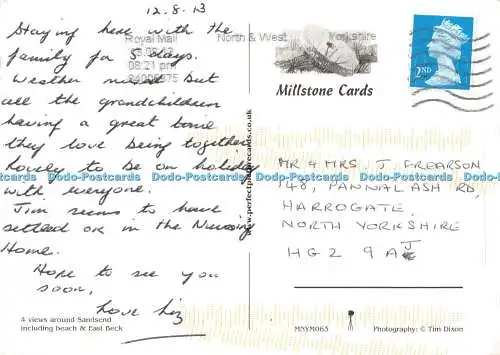 12.8.13
Staying here with the
family for 5 days.
Weather mixed but
all the grandchildren
having a great time
they love being together.
Lovely to be on holiday
with everyone.
Jim seems to have
settled ok in the Nursing
Home.
Hope to see you
soon,
Love Liz
4 views around Sandsend
including beach & East Beck
Royal Mail
North & West Yorkshire
08:21 pm
Millstone Cards
2ND
www.perfectpostcards.co.uk
MR & MRS J FREARSON
148, PANNAL ASH RD,
HARROGATE,
NORTH YORKSHIRE
HG2 9AJ
MNYM065
Photography: © Tim Dixon
Dodo-Postcards Dodo-Postcards Dodo-Postcards Dodo-Postcards Dodo-Postcards